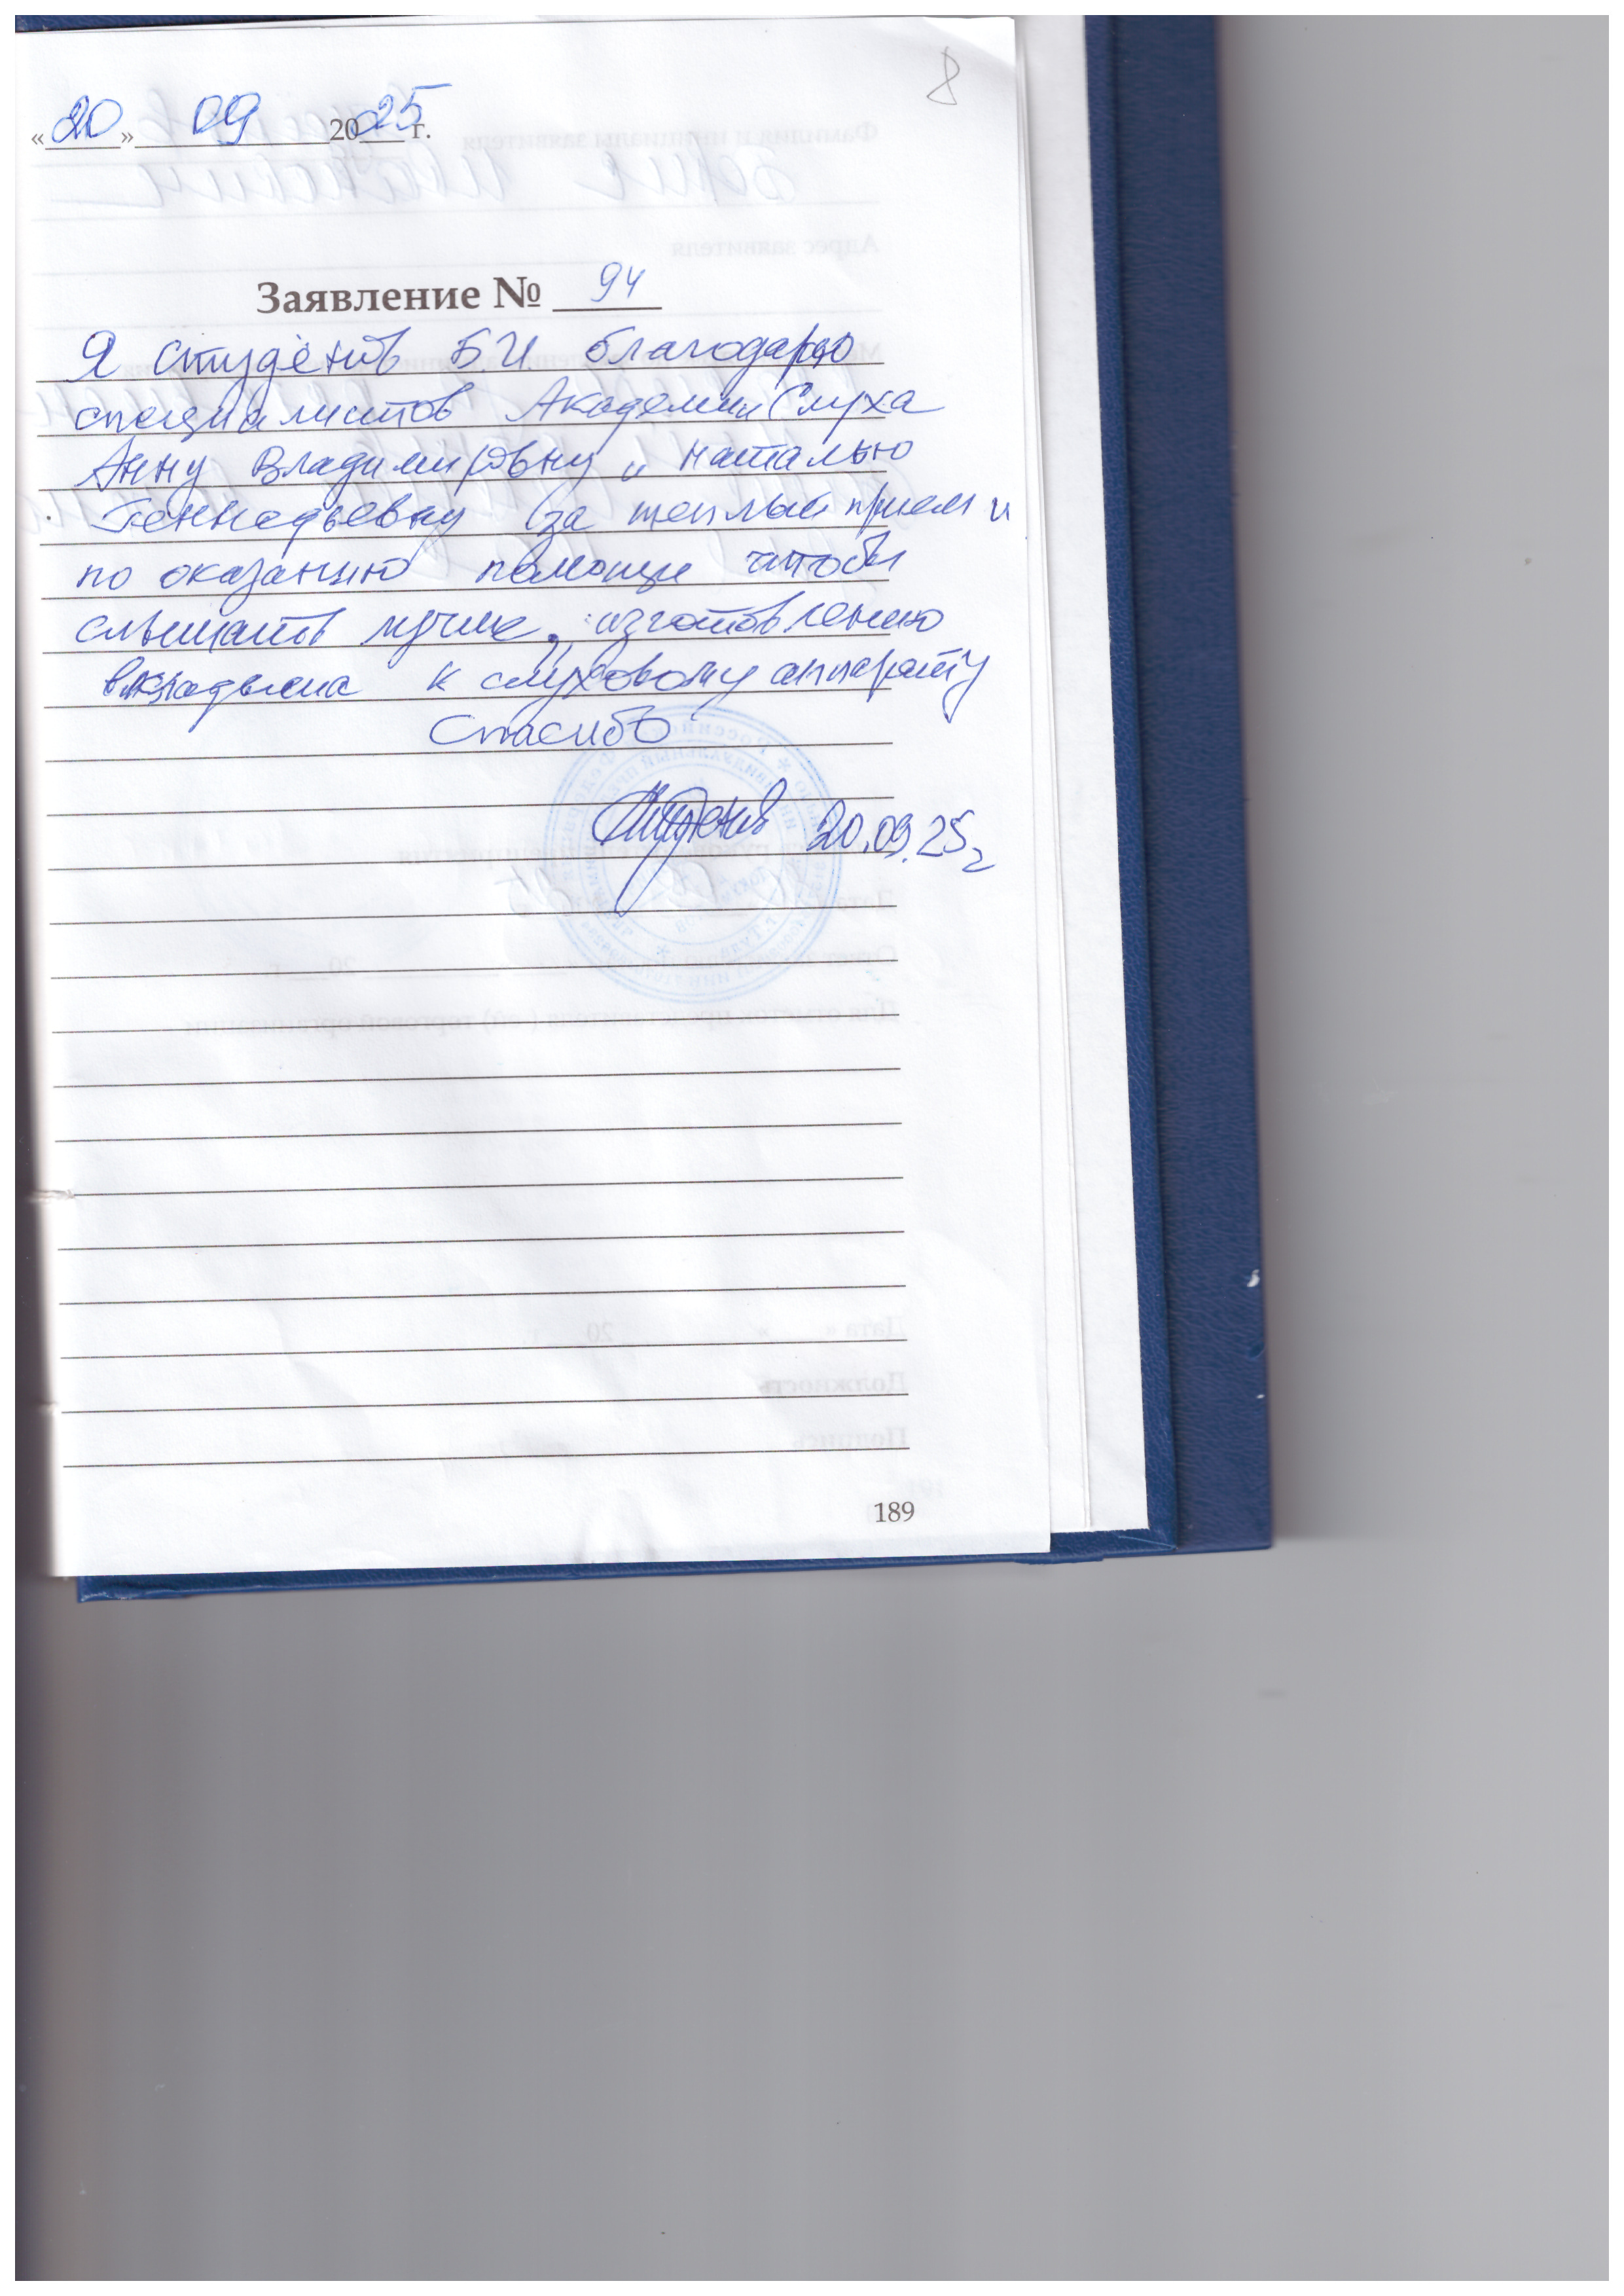 8
«20» 09 2025 г.
Заявление № 94
Я Студёнов Б И благодарю
специалистов Академии Слуха
Анну Владимировну и Наталью
Геннадьевну за теплый прием и
по оказанию помощи чтобы
слышать лучше, изготовлению
вкладыша к слуховому аппарату
Спасибо
20.09.25г
189